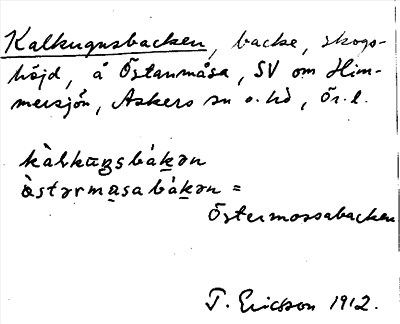 Kalkugnsbacken, backe, skogs-
höjd, å Östanmåsa, SV om Him-
mersjön, Askers sn o. hd, Ör. l.
kàlkuŋsbákən
àstərmasabákən =
Östermossabacken
T. Ericsson 1912.